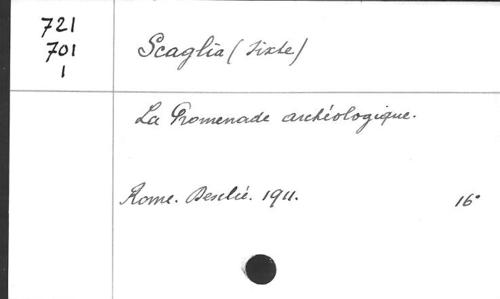 721
701
1
Scaglia (Sixte)
La Promenade archéologique.
Rome. Desclée. 1911. 16°